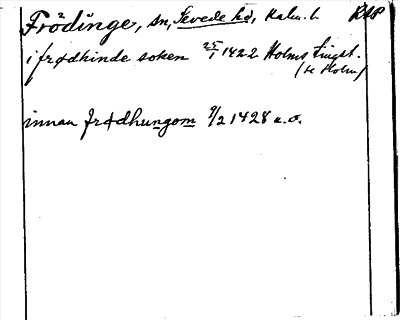 Frödinge, sn, Sevede hd, Kalm. l. RAP
i frødhinde soken 25/1 1422 Holms Tingst.
(se Holm)
innan frødhungom 9/2 1428 a.o.